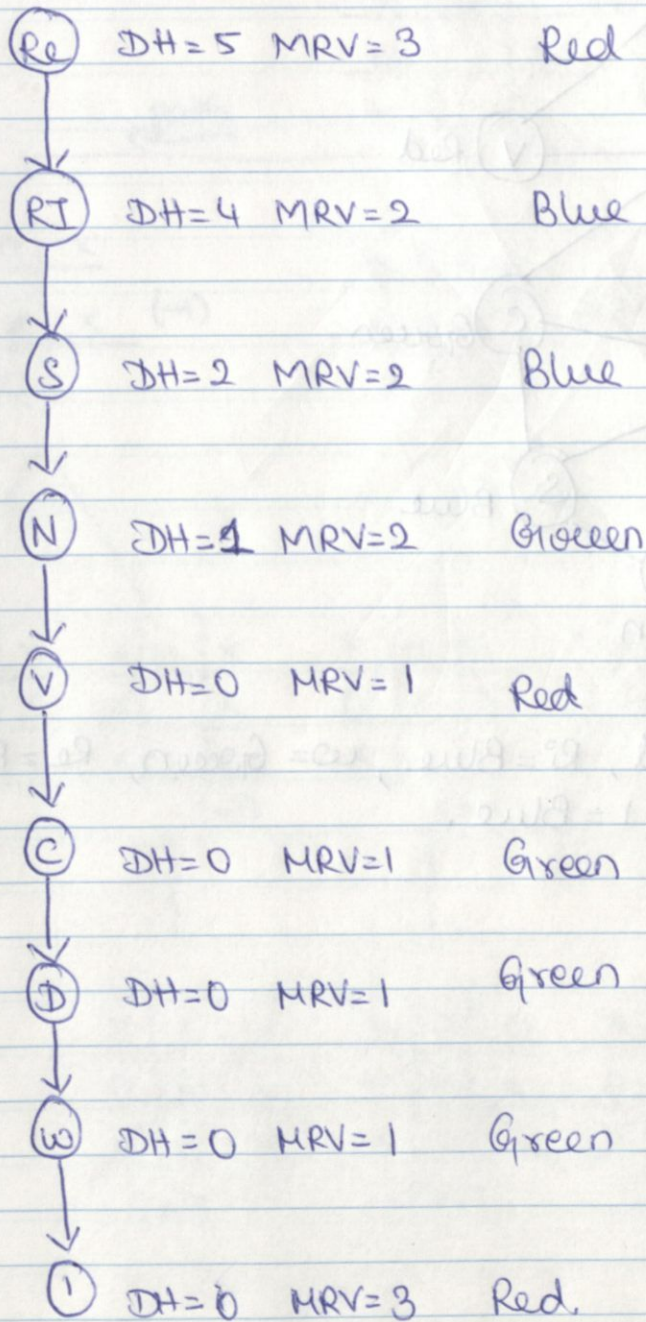 Re DH=5 MRV=3 Red
RI DH=4 MRV=2 Blue
S DH=2 MRV=2 Blue
N DH=1 MRV=2 Green
V DH=0 MRV=1 Red
C DH=0 MRV=1 Green
D DH=0 MRV=1 Green
W DH=0 MRV=1 Green
1 DH=0 MRV=3 Red.